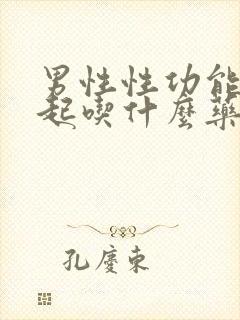 男性性功能
起喫什麼藥
孔慶東